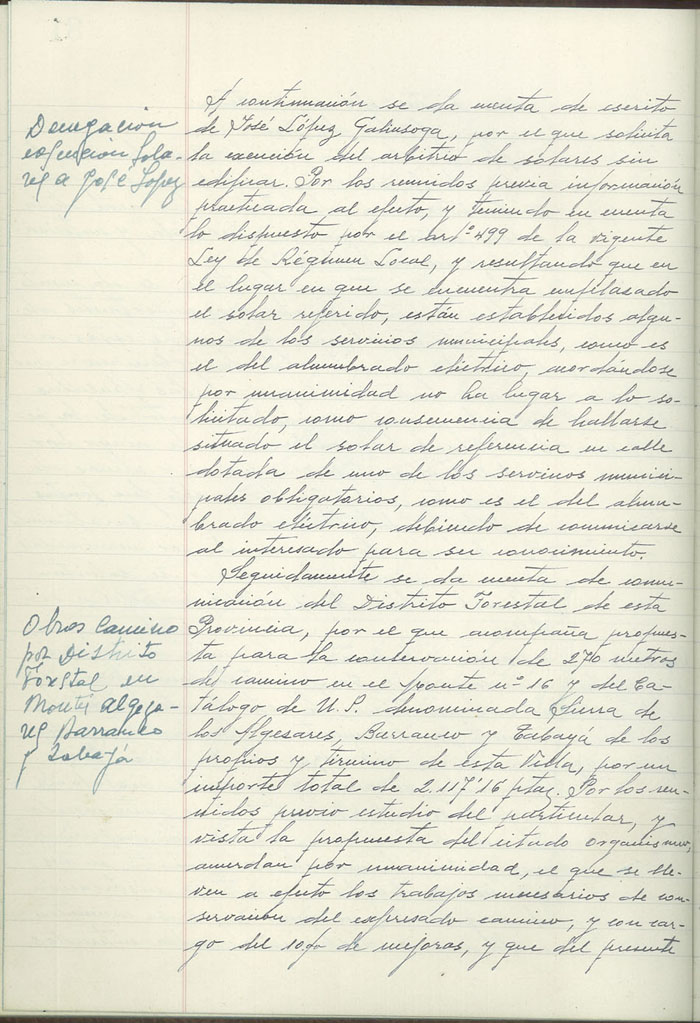 Denegación
exención Sola-
res a José López
A continuación se da cuenta de escrito
de José López Galiusoga, por el que solicita
la exención del arbitrio de solares sin
edificar. Por los reunidos previa información
practicada al efecto, y teniendo en cuenta
lo dispuesto por el artº 499 de la vigente
Ley de Régimen Local, y resultando que en
el lugar en que se encuentra enfilasado
el solar referido, están establecidos algu-
nos de los servicios municipales, como es
el del alumbrado eléctrico, acordándose
por unanimidad no ha lugar a lo so-
licitado, como consecuencia de hallarse
situado el solar de referencia en calle
dotada de uno de los servicios munici-
pales obligatorios, como es el del alum-
brado eléctrico, debiendo de comunicarse
al interesado para su conocimiento.
Obras Camino
por Distrito
Forestal en
Montes Algeza-
res Barranco
y Tabayá
Seguidamente se da cuenta de comu-
nicación del Distrito Forestal de esta
Provincia, por el que acompaña propues-
ta para la conservación de 270 metros
de camino en el Monte nº 16 y del Ca-
tálogo de U.P. denominada Sierra de
los Algesares, Barranco y Tabayá de los
propios y término de esta Villa, por un
importe total de 2.117'16 ptas. Por los reu-
nidos previo estudio del particular, y
vista la propuesta del citado organismo,
acuerdan por unanimidad, el que se lle-
ven a efecto los trabajos necesarios de con-
servación del expresado camino, y con car-
go del 10% de mejoras, y que del presente